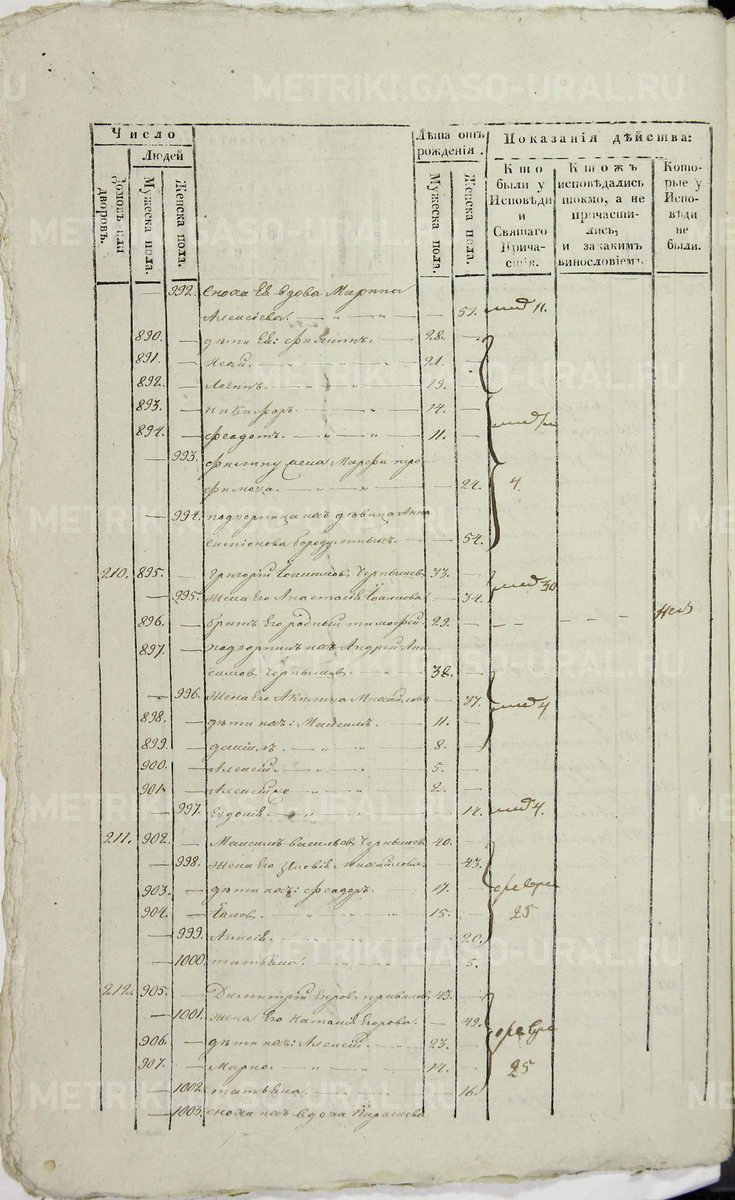 METRIKI.GASO-URAL.RU
Число
Лѣта отъ рожденія.
Показанія дѣйства:
Людей
Домовъ или дворовъ.
Мужеска пола.
Женска пола.
Мужеска пола.
Женска пола.
Кто были у Исповѣди и Святаго Причастія.
Ктожъ исповѣдались токмо, а не причастились, и закакимъ винословіемъ.
Которые у Исповѣди не были.
992. сноха Ея вдова Марина
Алексіева. 51. 11.
890. дѣти Ея: Филиппъ. 28.
891. Исай. 21.
892. Логинъ. 19.
893. Никифоръ. 14.
894. Феодотъ. 11.
993. Филипу жена Марфа тро
фимова. 24. 4.
994. подворница ихъ дѣвица Анна
Симіонова 54.
210. 895. Григорій Іоакимовъ Чернышевъ 33.
995. жена Его Анастасія Іоаннова 34. 30
896. братъ Его родный тимофей. 29.
897. подворникъ ихъ Андрей Ани
симовъ Чернышевъ. 38.
996. жена Его Акилина Михайлова 37. 4
898. дѣти ихъ: Максимъ. 11.
899. даніилъ. 8.
900. Алексій. 5.
901. 2.
997. Евдокія. 14. 4.
211. 902. Максимъ васильевъ Чернышевъ 40.
998. жена Его Михайлова. 43.
903. дѣти ихъ: феодоръ. 17. февра
904. Іаковъ. 15. 25
999. 20.
1000. татьяна. 5.
212. 905. Димитрій Егоровъ 43.
1001. жена Его Наталія Егорова. 49. февра
906. дѣти ихъ: Алексій. 23.
907. Марко. 14. 25
1002. татьяна. 16.
1003. сноха ихъ вдова Параскева